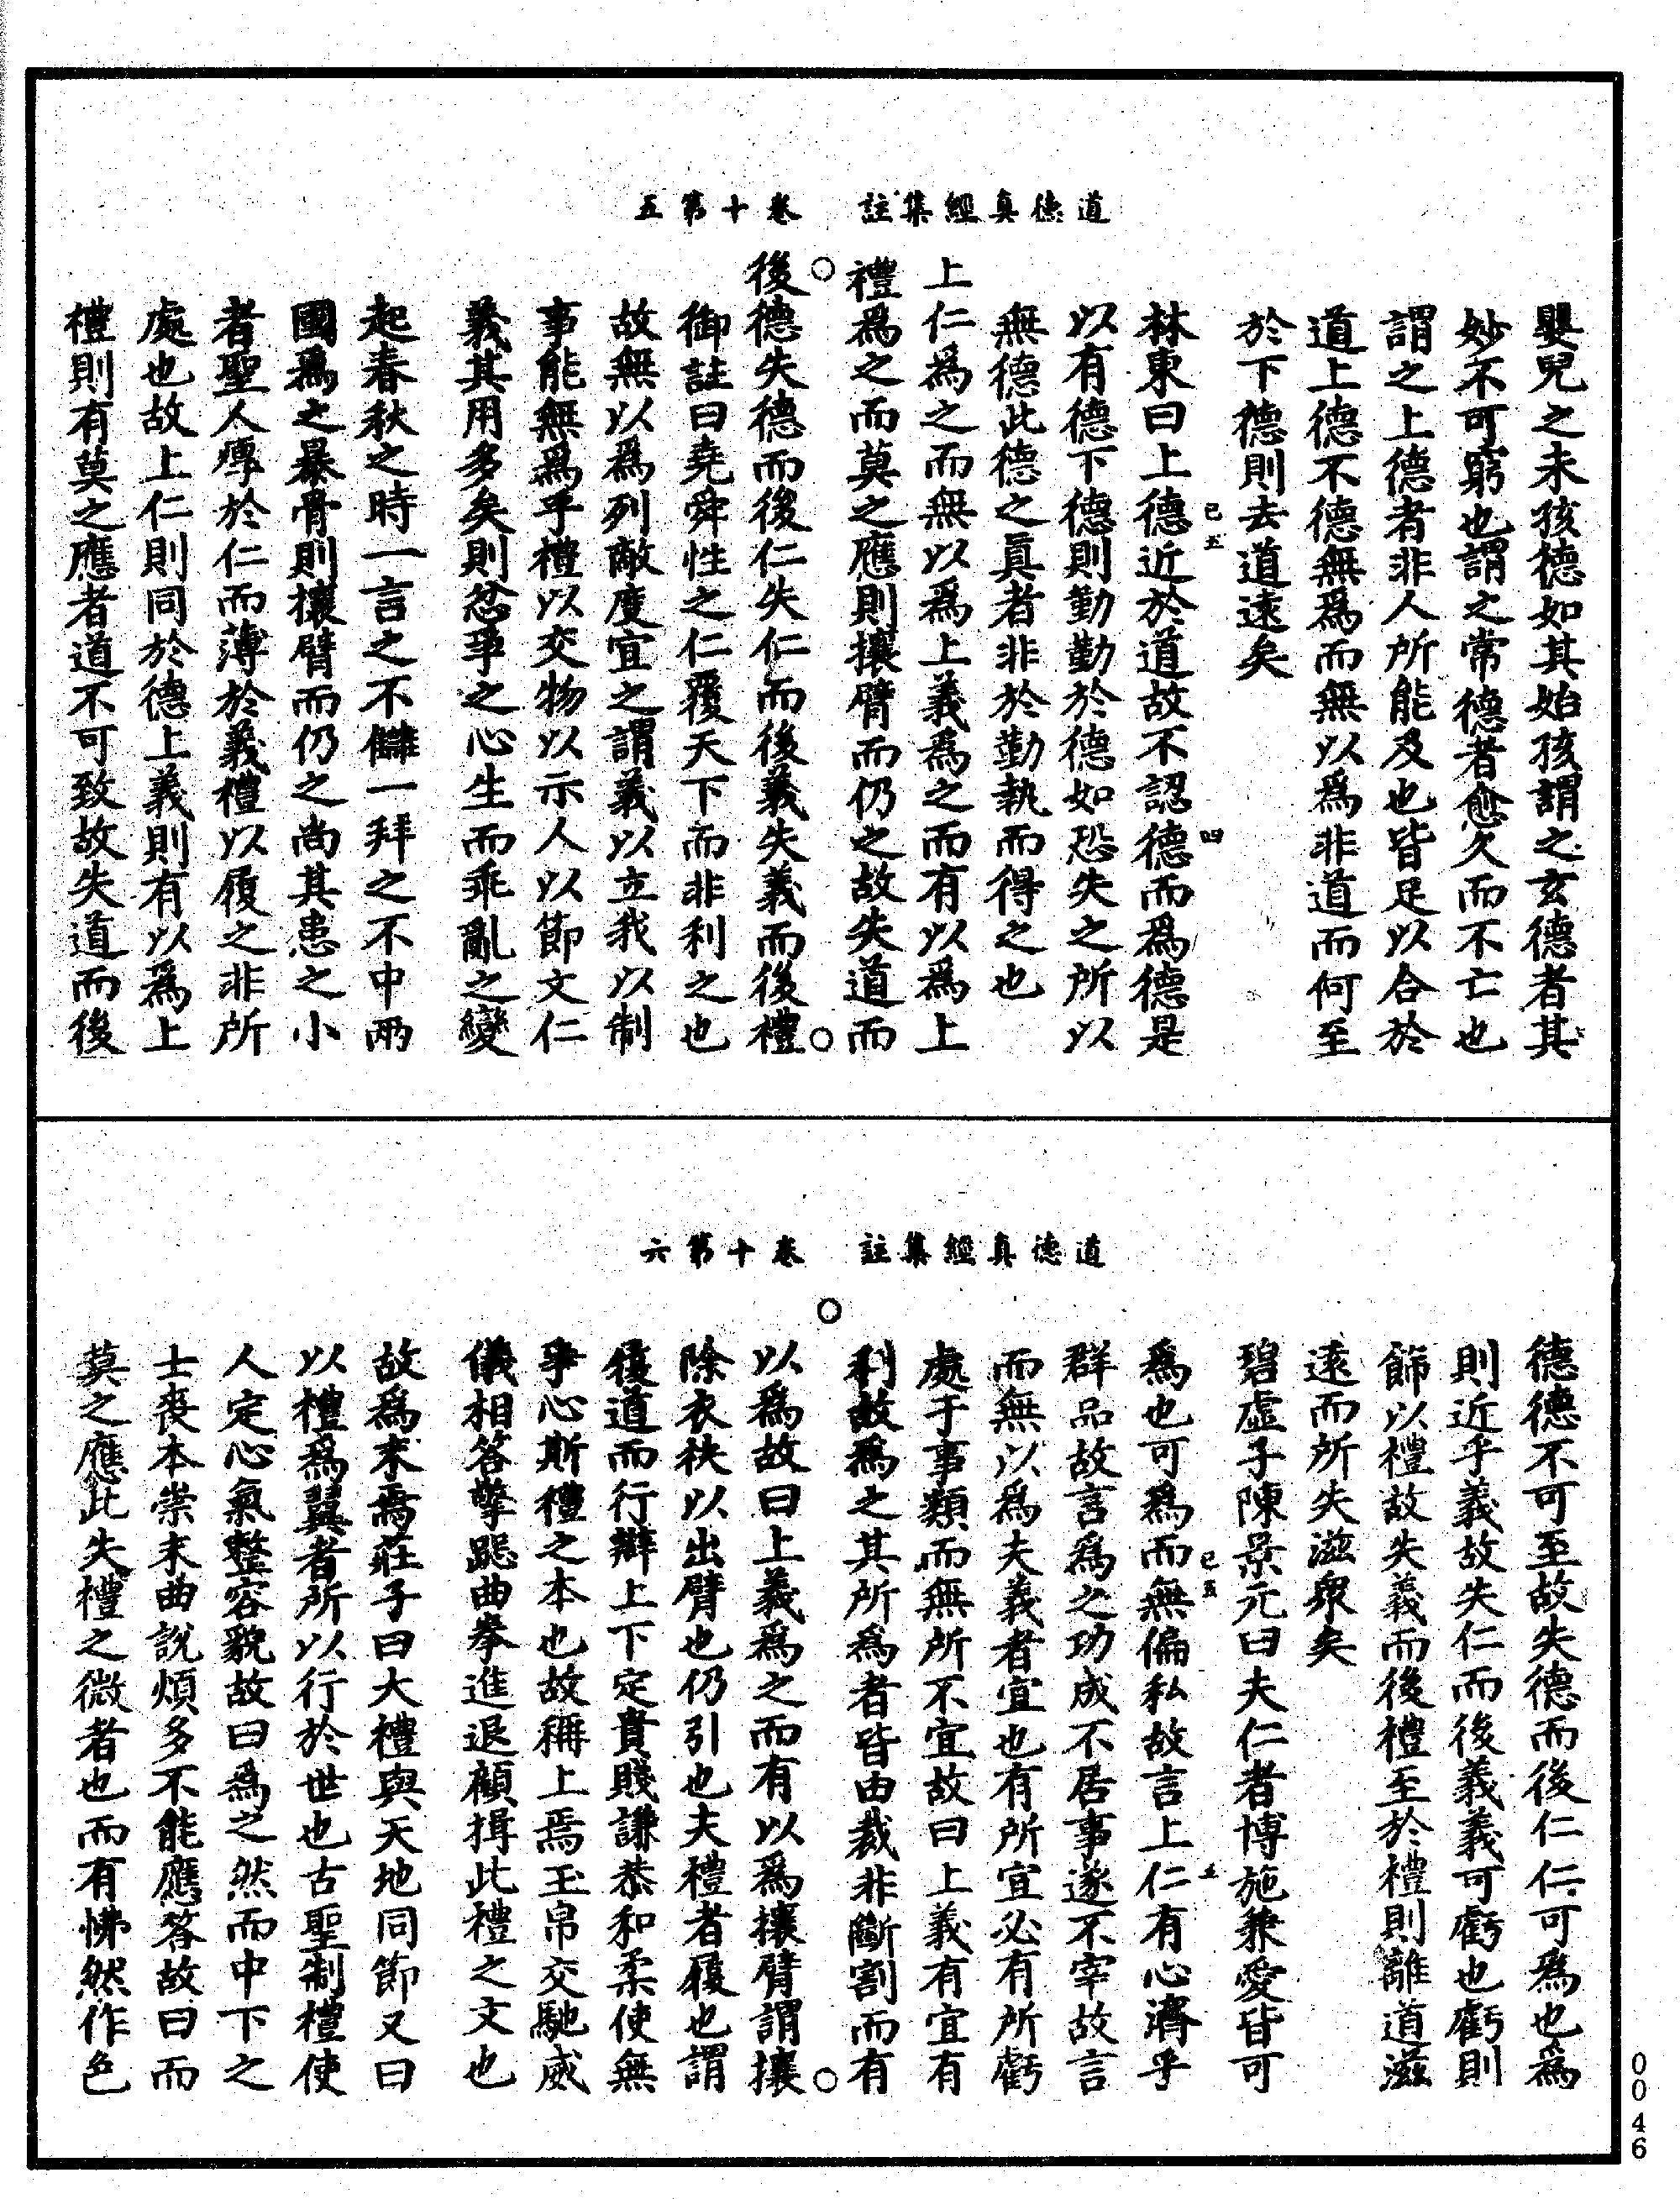 道德真經集註　卷十第五
嬰兒之未孩德如其始孩謂之玄德者其
妙不可窮也謂之常德者愈久而不亡也
謂之上德者非人所能及也皆足以合於
道上德不德無爲而無以爲非道而何至
於下德則去道遠矣
已五　四
林東曰上德近於道故不認德而爲德是
以有德下德則勤勤於德如恐失之所以
無德此德之眞者非於勤執而得之也
上仁爲之而無以爲上義爲之而有以爲上
禮爲之而莫之應則攘臂而仍之故失道而
後德失德而後仁失仁而後義失義而後禮
御註曰堯舜性之仁覆天下而非利之也
故無以爲列敵度宜之謂義以立我以制
事能無爲乎禮以交物以示人以節文仁
義其用多矣則忿爭之心生而乖亂之變
起春秋之時一言之不讎一拜之不中兩
國爲之暴骨則攘臂而仍之尚其患之小
者聖人厚於仁而薄於義禮以履之非所
處也故上仁則同於德上義則有以爲上
禮則有莫之應者道不可致故失道而後
道德真經集註　卷十第六
德德不可至故失德而後仁仁可爲也爲
則近乎義故失仁而後義義可虧也虧則
飾以禮故失義而後禮至於禮則離道滋
遠而所失滋眾矣
碧虛子陳景元曰夫仁者博施兼愛皆可
已五　五
爲也可爲而無偏私故言上仁有心濟乎
群品故言爲之功成不居事遂不宰故言
而無以爲夫義者宜也有所宜必有所虧
處于事類而無所不宜故曰上義有宜有
利故爲之其所爲者皆由裁非斷割而有
以爲故曰上義爲之而有以爲攘臂謂攘
除衣袂以出臂也仍引也夫禮者履也謂
履道而行辯上下定貴賤謙恭和柔使無
爭心斯禮之本也故稱上焉玉帛交馳威
儀相答擎跽曲拳進退顧揖此禮之文也
故爲末焉莊子曰大禮與天地同節又曰
以禮爲翼者所以行於世也古聖制禮使
人定心氣整容貌故曰爲之然而中下之
士喪本崇末曲說煩多不能應答故曰而
莫之應此失禮之微者也而有怫然作色
0046